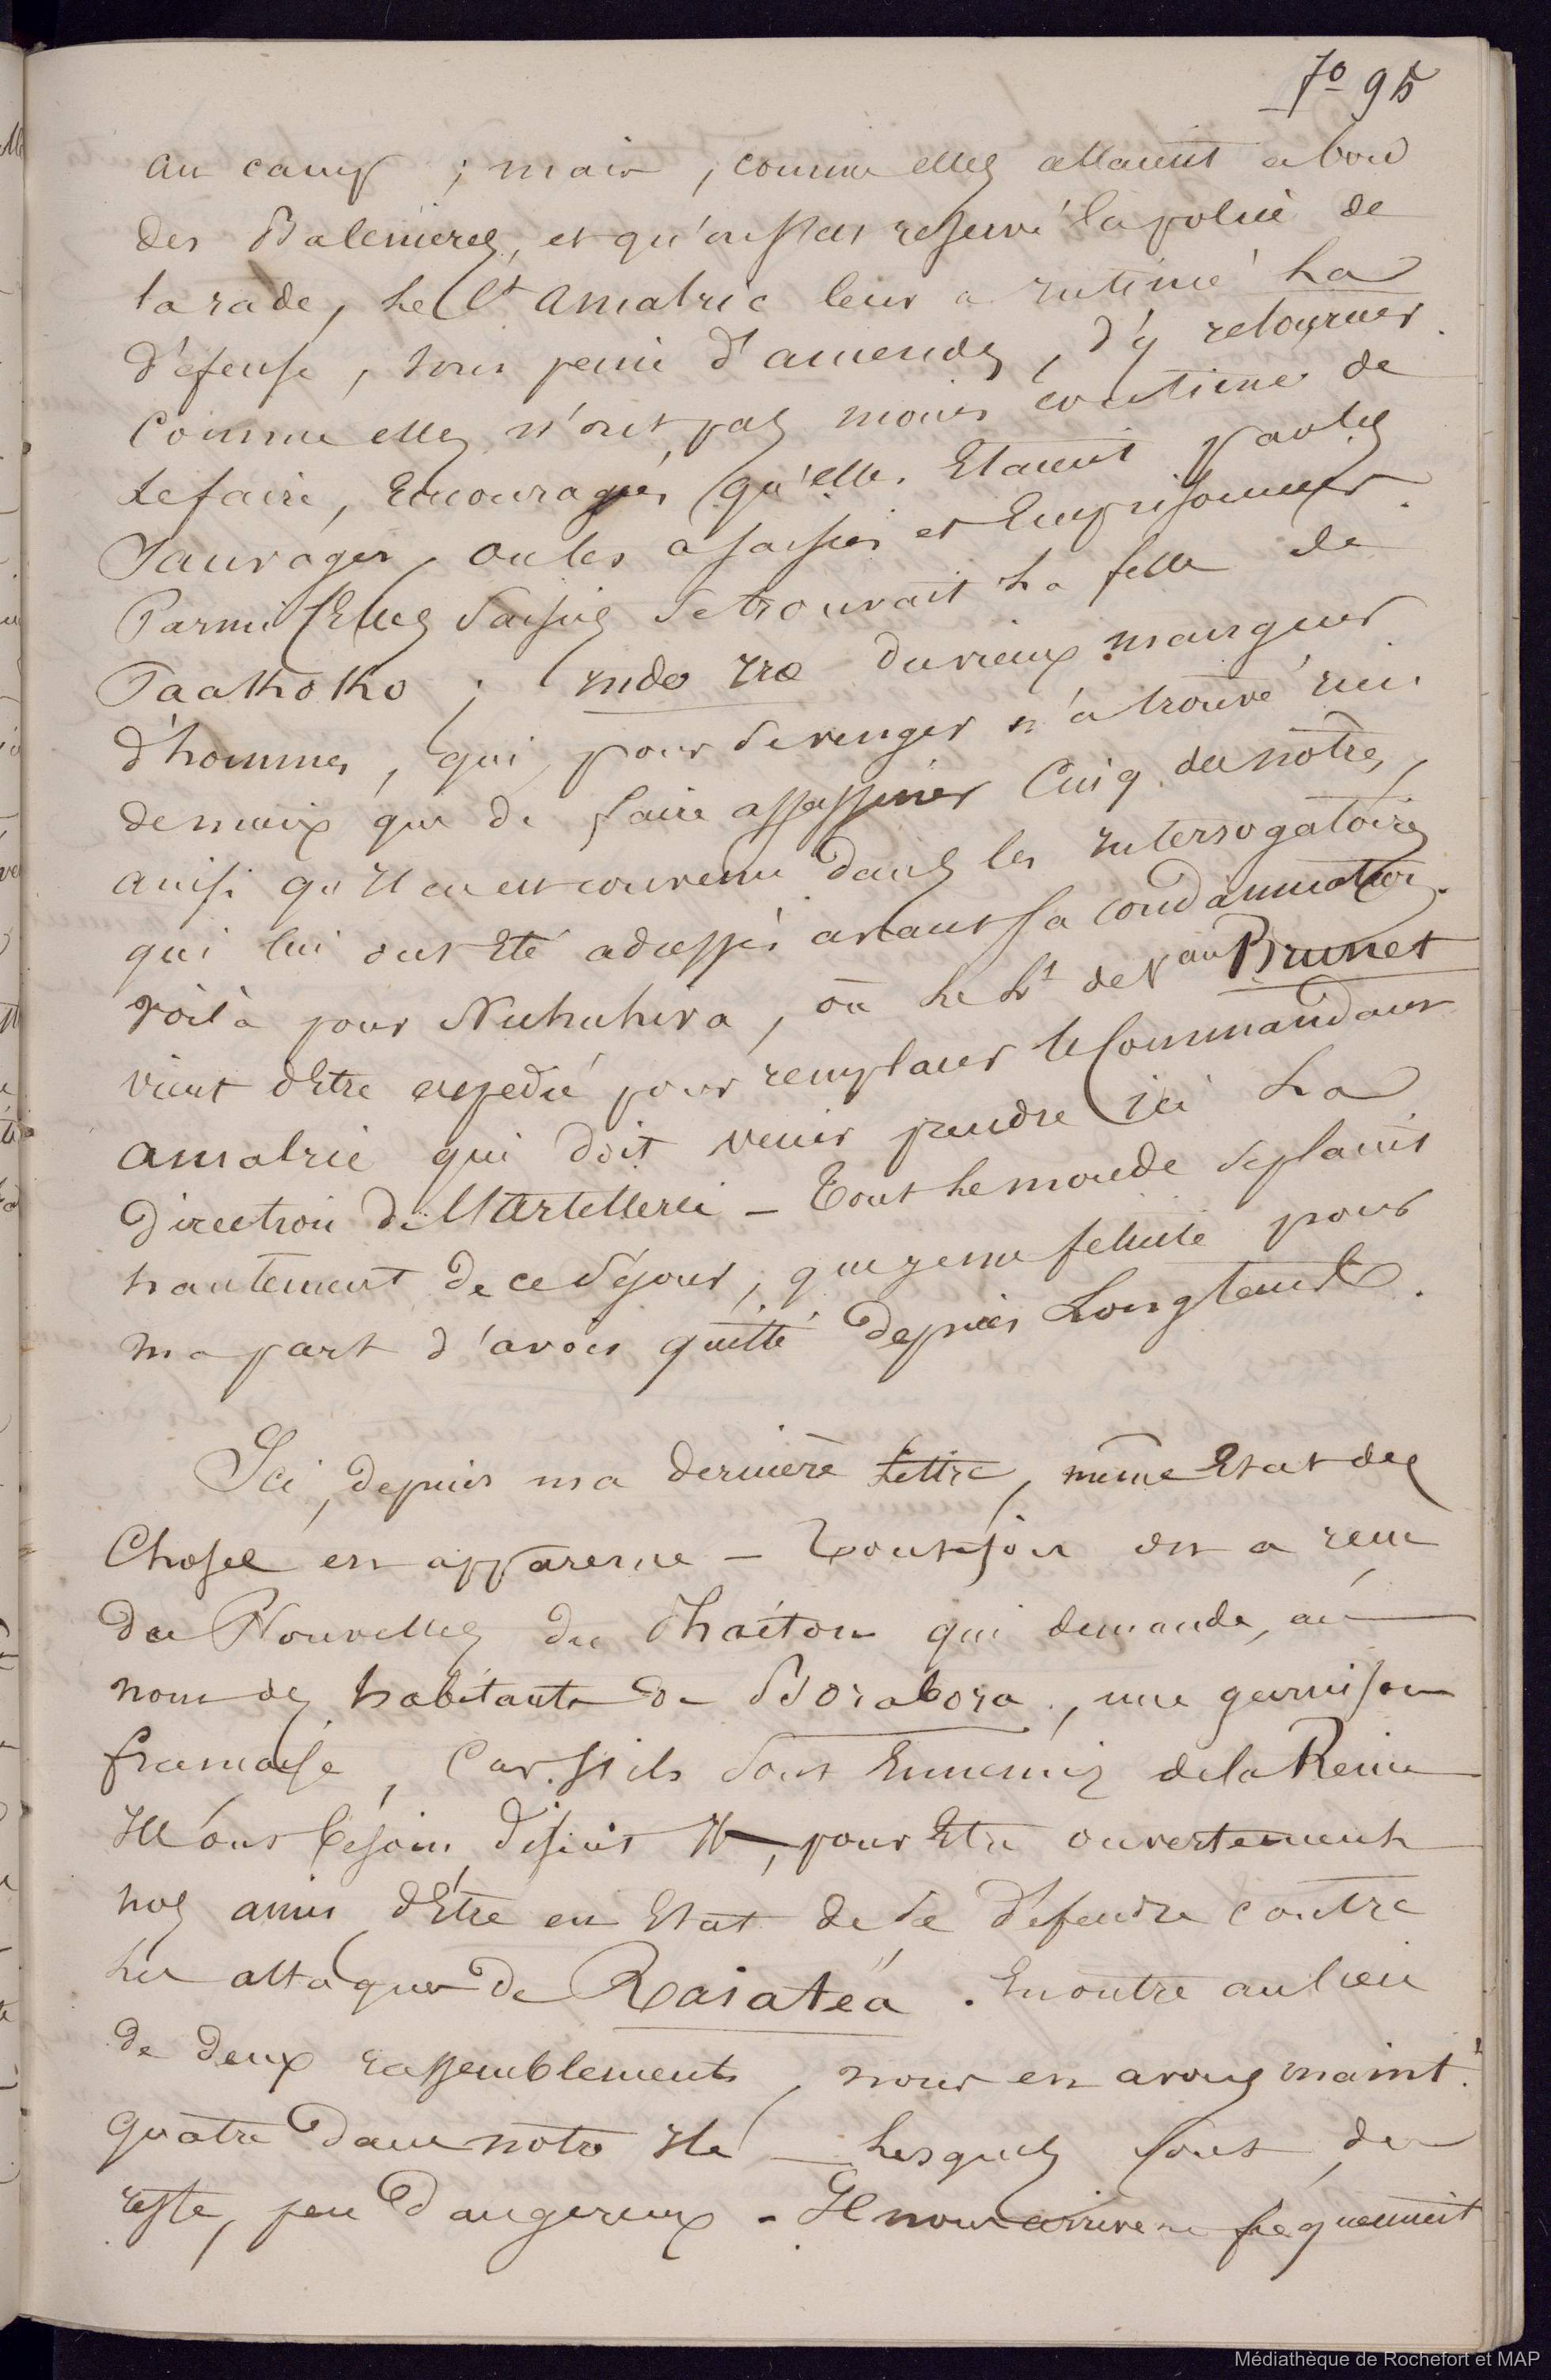 fo 95
au camp ; mais, comme elles allaient a bord
des Baleinieres, et qu'on s'est reservé la police de
la rade, Le Ct Amalric leur a intimé La
défense, sous peine d'amendes, d'y retourner.
Comme elles n'ont pas moins continué de
le faire, Encouragées qu'elles Etaient par les
Sauvages, on les a saisies et Emprisonnées.
Parmi Elles saisies Se trouvait La fille de
Paakoko ; inde iræ du vieux mangeur
d'hommes, qui, pour Se venger n'a trouvé rien
de mieux que de faire assassiner Cinq des notres,
ainsi qu'Il en est convenu dans les interrogatoires
qui lui ont Eté adressés avant sa condamnation.
Voilà pour Nuhuhiva, où Le Lt de Vau Brunet
vient d'Etre expedié pour remplacer le Commandant
Amalric qui doit venir prendre ici La
Direction de l'Artillerie - Tout Le monde se plaint
hautement de ce Séjour, que je me felicite pour
ma part d'avoir quitté depuis Longtemps.
Ici, depuis ma dernière Lettre, même Etat des
Choses en apparence - Toutefois on a recu
des Nouvelles du Phaéton qui demande, au
nom des habitants de Borabora, une garnison
francaise, Car s'ils sont Ennemis de la Reine
Ils ont besoin, disent Ils, pour Etre ouvertement
nos amis d'Etre en Etat de se défendre contre
les attaques de Raiatéa. En outre au lieu
de deux rassemblements, nous en avons maint.t
quatre dans notre Ile - Lesquels sont, du
reste, peu dangereux. - Il nous arrive frequemment
Médiathèque de Rochefort et MAP